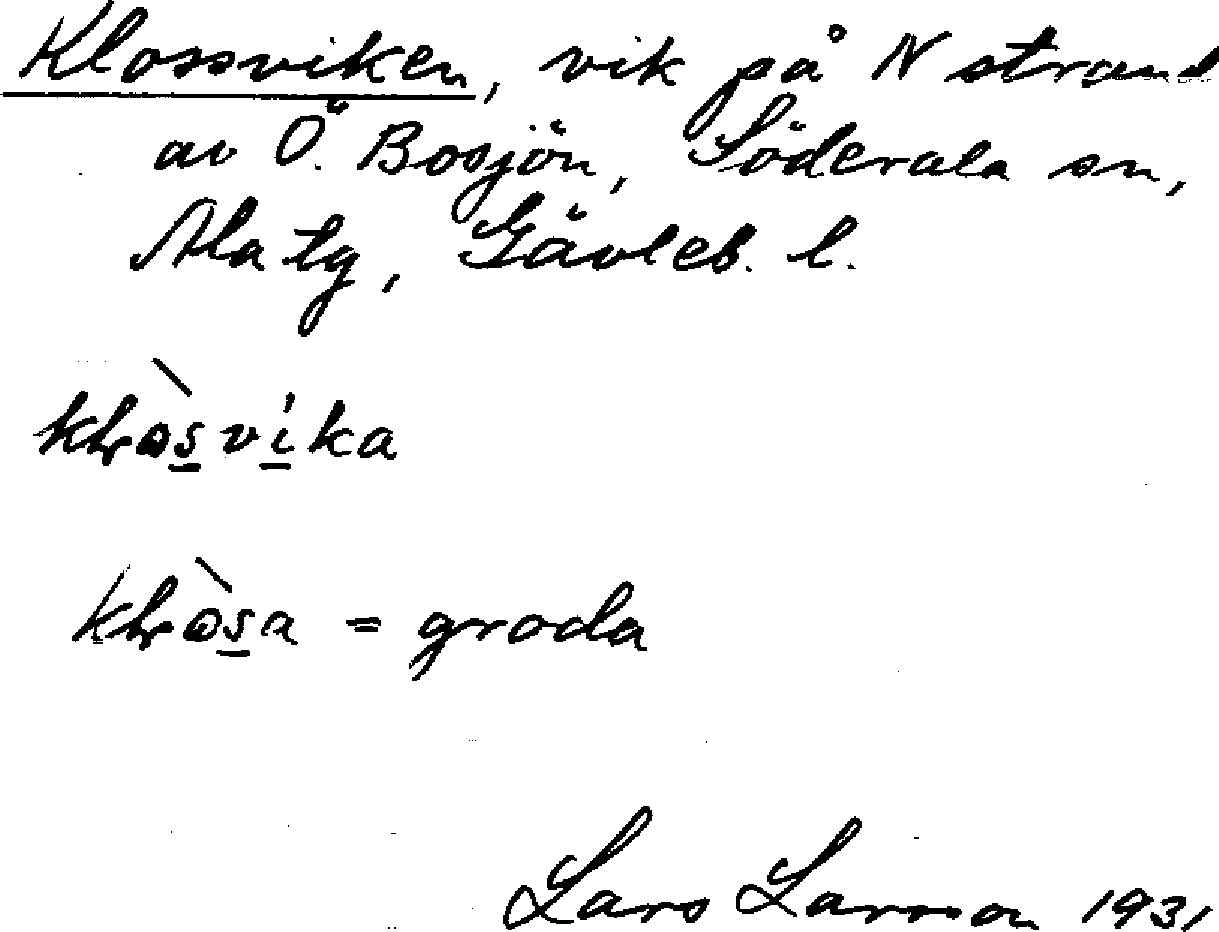 Klossviken, vik på N strand
av Ö. Bosjön, Söderala sn,
Ala tg, Gävleb. l.
kḷɷ̀svi̍ka
kḷɷ̀sa = groda
Lars Larsson 1931